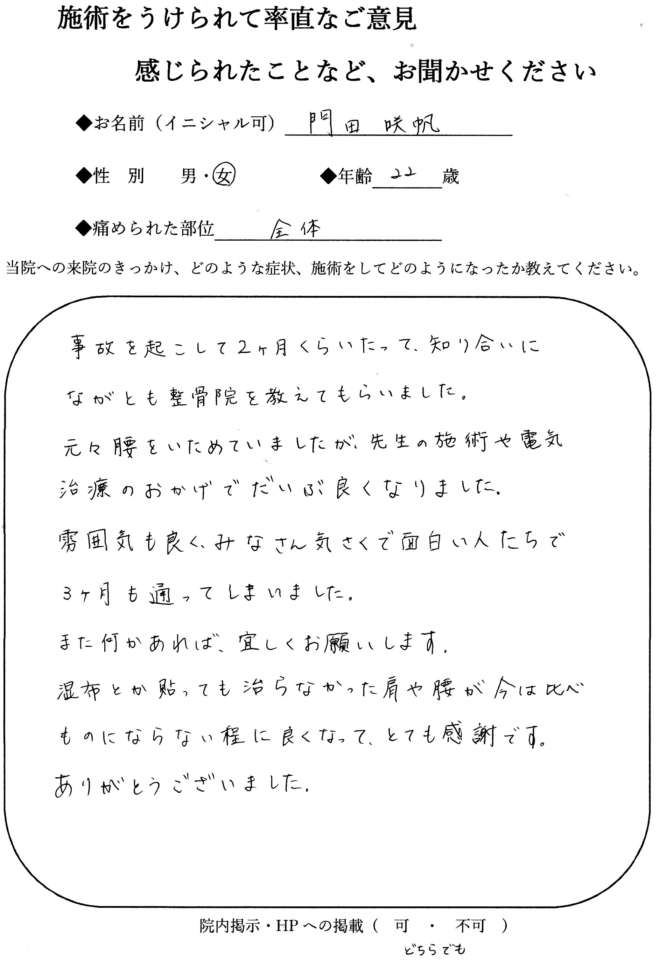 施術をうけられて率直なご意見
感じられたことなど、お聞かせください
◆お名前（イニシャル可） 門田 咲帆
◆性 別 男・女 ◆年齢 22 歳
◆痛められた部位 全体
当院への来院のきっかけ、どのような症状、施術をしてどのようになったか教えてください。
事故を起こして2ヶ月くらいたって、知り合いに
ながとも整骨院を教えてもらいました。
元々腰をいためていましたが、先生の施術や電気
治療のおかげでだいぶ良くなりました。
雰囲気も良く、みなさん気さくで面白い人たちで
3ヶ月も通ってしまいました。
また何かあれば、宜しくお願いします。
湿布とか貼っても治らなかった肩や腰が今は比べ
ものにならない程に良くなって、とても感謝です。
ありがとうございました。
院内掲示・HPへの掲載（ 可 ・ 不可 ）
どちらでも